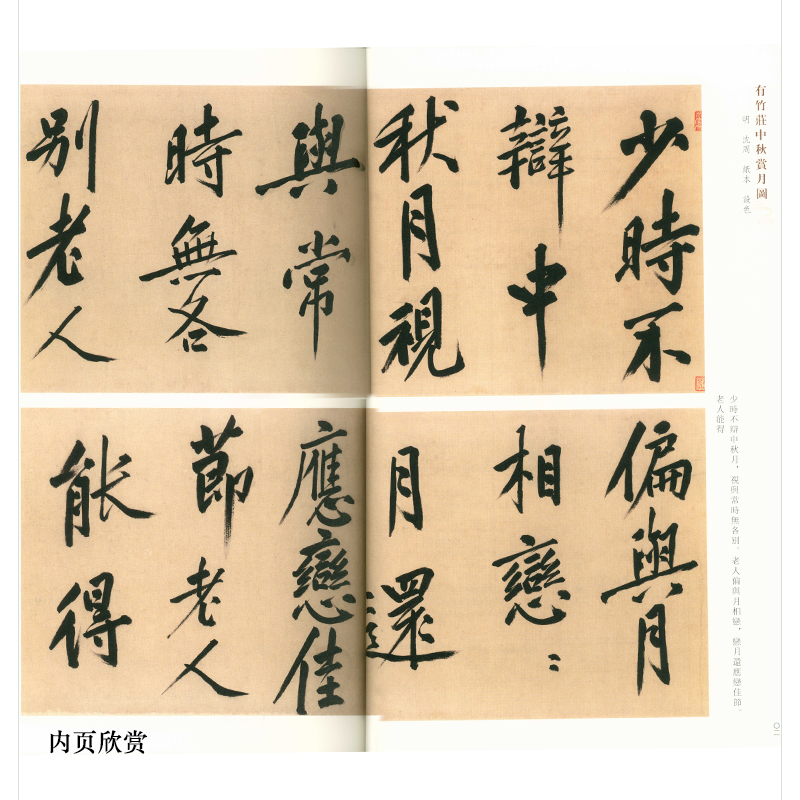 有竹莊中秋賞月圖
明 沈周 紙本 設色
少時不
辯中
秋月視
與常
時無各
別老人
偏與月
相戀〻
月還
應戀佳
節老人
能得
少時不辯中秋月，視與常時無各別。老人偏與月相戀，戀月還應戀佳節。
老人能得
〇二
内页欣赏